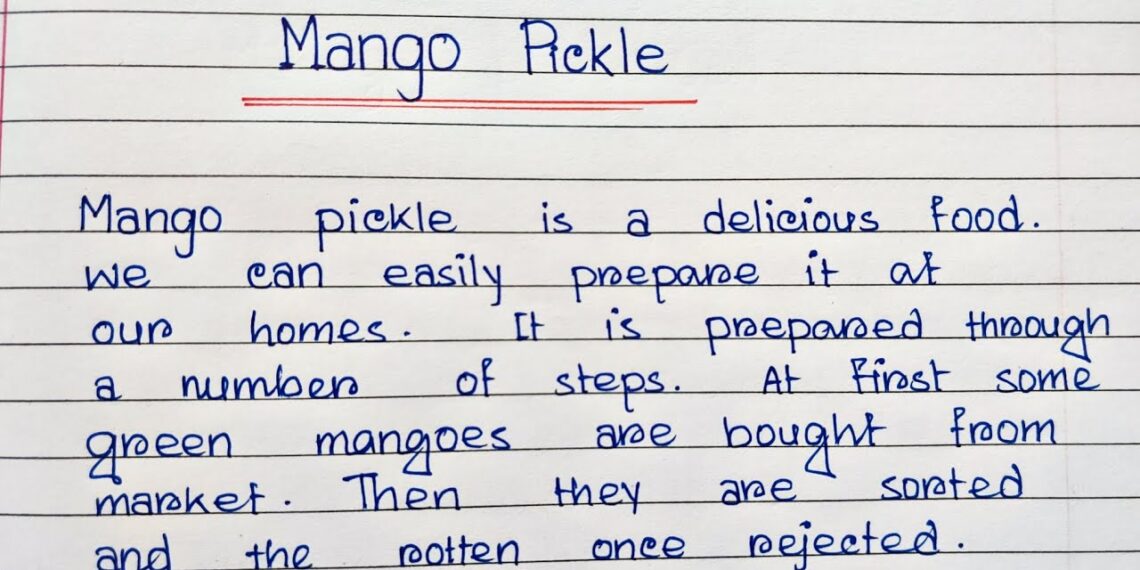 Mango Pickle
Mango pickle is a delicious food.
we can easily prepare it at
our homes. It is prepared through
a number of steps. At first some
green mangoes are bought from
market. Then they are sorted
and the rotten once rejected.